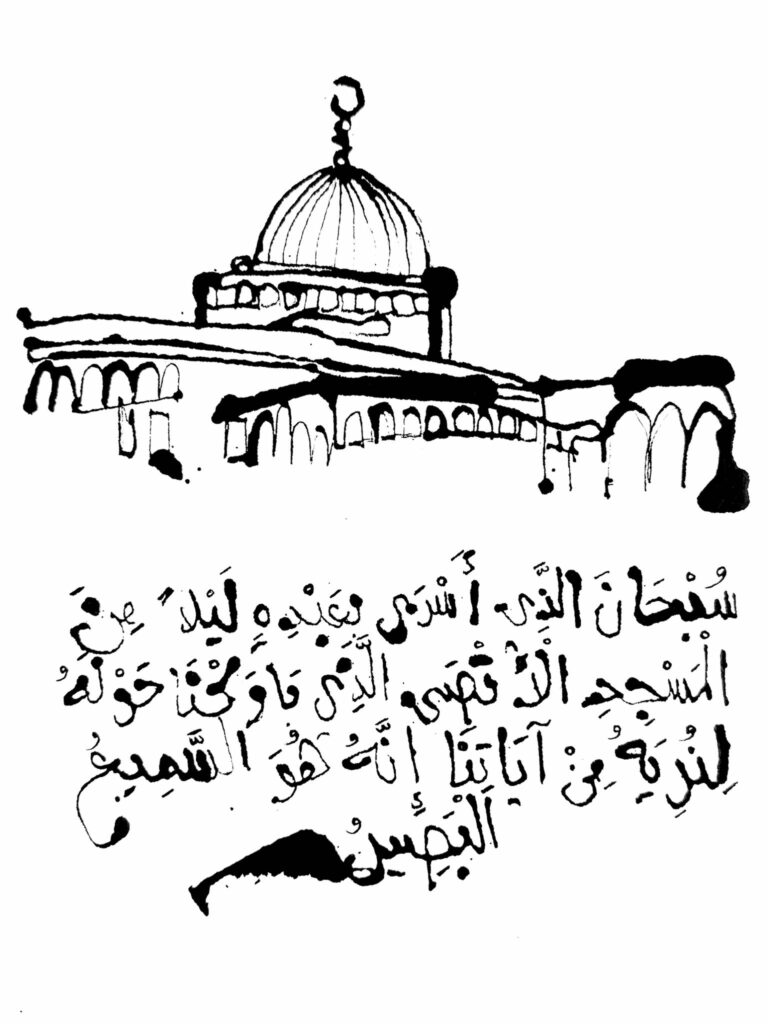 سُبْحَانَ الَّذِي أَسْرَى بِعَبْدِهِ لَيْلاً مِنَ
الْمَسْجِدِ الْأَقْصَى الَّذِي حَوْلَهُ
لِنُرِيَهُ مِنْ آيَاتِنَا إِنَّهُ هُوَ السَّمِيعُ
الْبَصِيرُ